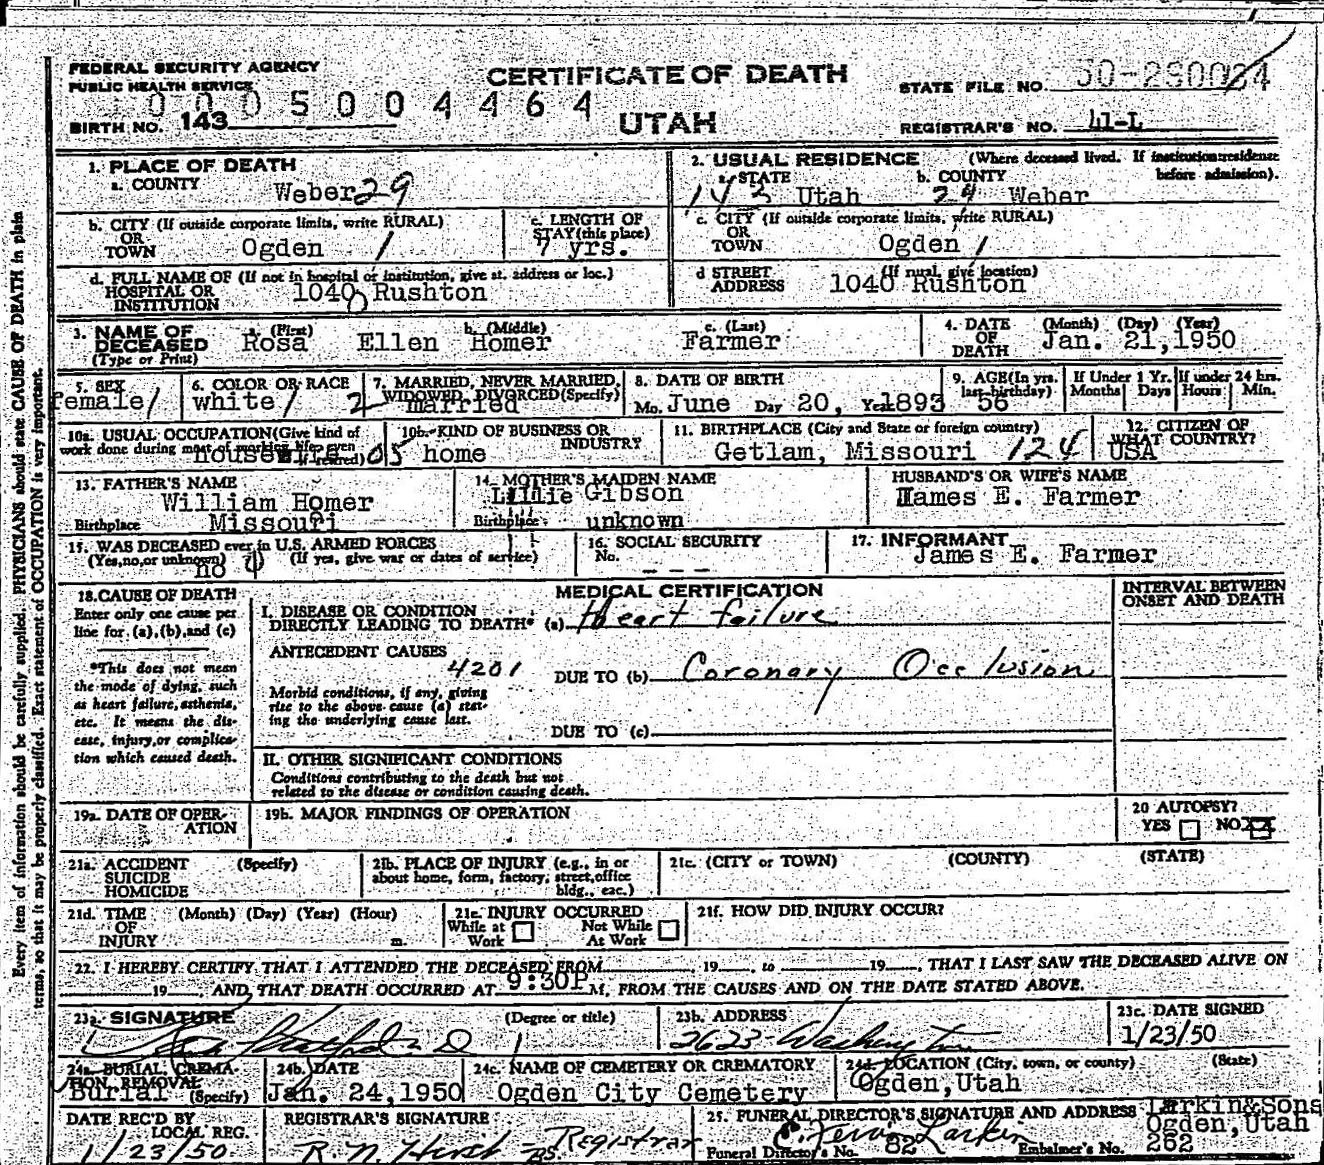 FEDERAL SECURITY AGENCY
PUBLIC HEALTH SERVICE
CERTIFICATE OF DEATH
UTAH
STATE FILE NO.
0005004464
BIRTH NO. 143
REGISTRAR'S NO. 41-L
1. PLACE OF DEATH
a. COUNTY Weber 29
2. USUAL RESIDENCE (Where deceased lived. If institution: residence before admission).
a. STATE 143 Utah b. COUNTY 29 Weber
b. CITY (If outside corporate limits, write RURAL) OR TOWN Ogden 1
c. LENGTH OF STAY (this place) 7 yrs.
c. CITY (If outside corporate limits, write RURAL) OR TOWN Ogden 1
d. FULL NAME OF (If not in hospital or institution, give st. address or loc.) HOSPITAL OR INSTITUTION 1040 Rushton
d STREET ADDRESS (If rural, give location) 1040 Rushton
3. NAME OF DECEASED (Type or Print) a. (First) Rosa Ellen b. (Middle) Homer c. (Last) Farmer
4. DATE OF DEATH (Month) (Day) (Year) Jan. 21, 1950
5. SEX female 1
6. COLOR OR RACE white 1
7. MARRIED, NEVER MARRIED, WIDOWED, DIVORCED (Specify) 2 married
8. DATE OF BIRTH Mo. June Day 20, Year 1893
9. AGE (In yrs. last birthday) 56
If Under 1 Yr. Months Days
If under 24 hrs. Hours Min.
10a. USUAL OCCUPATION (Give kind of work done during most of working life, even if retired) housewife 05
10b. KIND OF BUSINESS OR INDUSTRY home
11. BIRTHPLACE (City and State or foreign country) Getlam, Missouri 124
12. CITIZEN OF WHAT COUNTRY? USA
13. FATHER'S NAME William Homer
Birthplace Missouri
14. MOTHER'S MAIDEN NAME Lillie Gibson
Birthplace unknown
HUSBAND'S OR WIFE'S NAME James E. Farmer
15. WAS DECEASED ever in U.S. ARMED FORCES (Yes, no, or unknown) (If yes, give war or dates of service) no 0
16. SOCIAL SECURITY No. - - -
17. INFORMANT James E. Farmer
18. CAUSE OF DEATH
Enter only one cause per line for (a), (b), and (c)
*This does not mean the mode of dying, such as heart failure, asthenia, etc. It means the disease, injury, or complication which caused death.
MEDICAL CERTIFICATION
INTERVAL BETWEEN ONSET AND DEATH
I. DISEASE OR CONDITION DIRECTLY LEADING TO DEATH* (a) Heart failure
ANTECEDENT CAUSES 4201
Morbid conditions, if any, giving rise to the above cause (a) stating the underlying cause last.
DUE TO (b) Coronary Occlusion
DUE TO (c)
II. OTHER SIGNIFICANT CONDITIONS
Conditions contributing to the death but not related to the disease or condition causing death.
19a. DATE OF OPERATION
19b. MAJOR FINDINGS OF OPERATION
20 AUTOPSY?
YES NO XX
21a. ACCIDENT SUICIDE HOMICIDE (Specify)
21b. PLACE OF INJURY (e.g., in or about home, form, factory, street, office bldg., eac.)
21c. (CITY or TOWN) (COUNTY) (STATE)
21d. TIME OF INJURY (Month) (Day) (Year) (Hour) m.
21e. INJURY OCCURRED While at Work Not While At Work
21f. HOW DID INJURY OCCUR?
22. I HEREBY CERTIFY THAT I ATTENDED THE DECEASED FROM , 19 , to 19 , THAT I LAST SAW THE DECEASED ALIVE ON
19 , AND THAT DEATH OCCURRED AT 9:30P M, FROM THE CAUSES AND ON THE DATE STATED ABOVE.
23a. SIGNATURE (Degree or title)
23b. ADDRESS 2623 Washington
23c. DATE SIGNED 1/23/50
24a. BURIAL, CREMATION, REMOVAL (Specify) Burial
24b. DATE Jan. 24, 1950
24c. NAME OF CEMETERY OR CREMATORY Ogden City Cemetery
24d. LOCATION (City, town, or county) (State) Ogden, Utah
DATE REC'D BY LOCAL REG. 1/23/50
REGISTRAR'S SIGNATURE Registrar
25. FUNERAL DIRECTOR'S SIGNATURE AND ADDRESS Larkin & Sons Ogden, Utah
Larkin
Funeral Director's No. 82 Embalmer's No. 262
Every item of information should be carefully supplied. PHYSICIANS should state CAUSE OF DEATH in plain
terms, so that it may be properly classified. Exact statement of OCCUPATION is very important.